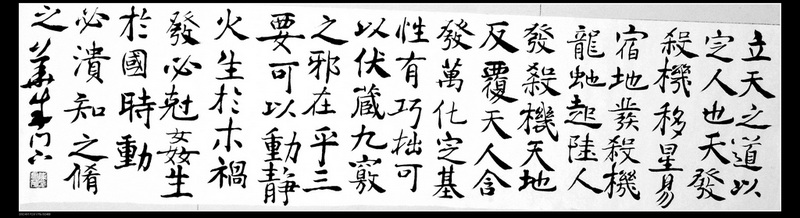 立天之道以
定人也天發
殺機移星易
宿地發殺機
龍虵起陸人
發殺機天地
反覆天人合
發萬化定基
性有巧拙可
以伏藏九竅
之邪在乎三
要可以動静
火生於木禍
發必尅姦生
於國時動
必潰知之脩
之